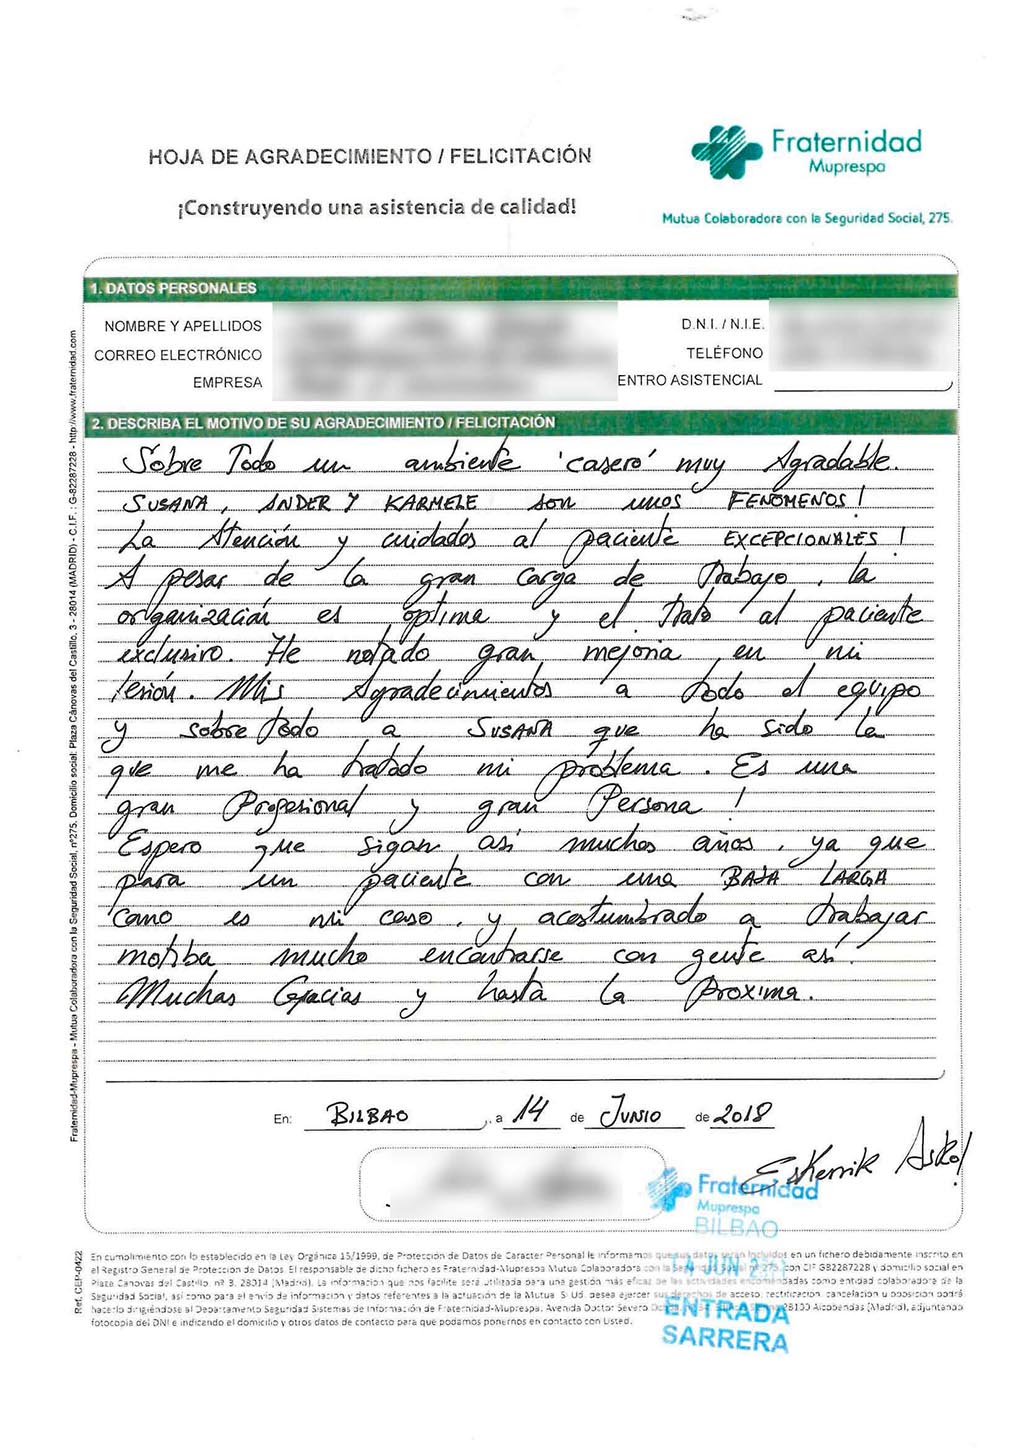 HOJA DE AGRADECIMIENTO / FELICITACIÓN
¡Construyendo una asistencia de calidad!
Fraternidad
Muprespa
Mutua Colaboradora con la Seguridad Social, 275.
1. DATOS PERSONALES
NOMBRE Y APELLIDOS
D.N.I. / N.I.E.
CORREO ELECTRÓNICO
TELÉFONO
EMPRESA
ENTRO ASISTENCIAL
2. DESCRIBA EL MOTIVO DE SU AGRADECIMIENTO / FELICITACIÓN
Sobre Todo un ambiente 'casero' muy Agradable.
SUSANA, ANDER Y KARMELE son unos FENOMENOS!
La Atención y cuidados al paciente EXCEPCIONALES!
A pesar de la gran carga de trabajo, la
organización es óptima y el trato al paciente
exclusivo. He notado gran mejoria en mi
lesión. Mis Agradecimientos a todo el equipo
y sobre todo a SUSANA que ha sido la
que me ha tratado mi problema. Es una
gran Profesional y gran Persona!
Espero que sigan así muchos años, ya que
para un paciente con una BAJA LARGA
como es mi caso, y acostumbrado a trabajar
motiba mucho encontrarse con gente así.
Muchas Gracias y hasta la Proxima.
En: BILBAO, a 14 de JUNIO de 2018
Eskerrik Asko!
Fraternidad
Muprespa
BILBAO
4 JUN
ENTRADA
SARRERA
En cumplimiento con lo establecido en la Ley Orgánica 15/1999, de Protección de Datos de Caracter Personal le informamos que sus datos serán incluidos en un fichero debidamente inscrito en
el Registro General de Protección de Datos. El responsable de dicho fichero es Fraternidad-Muprespa Mutua Colaboradora con la Seguridad Social nº 275, con CIF G82287228 y domicilio social en
Plaza Cánovas del Castillo, nº 3, 28014 (Madrid). La información que nos facilite será utilizada para una gestión más eficaz de las actividades encomendadas como entidad colaboradora de la
Seguridad Social, así como para el envío de información y datos referentes a la actuación de la Mutua. Si Ud. desea ejercer sus derechos de acceso, rectificación, cancelación u oposición podrá
hacerlo dirigiéndose al Departamento Seguridad Sistemas de Información de Fraternidad-Muprespa, Avenida Doctor Severo 28100 Alcobendas (Madrid), adjuntando
fotocopia del DNI e indicando el domicilio y otros datos de contacto para que podamos ponernos en contacto con Usted.
Fraternidad-Muprespa - Mutua Colaboradora con la Seguridad Social, nº275. Domicilio social: Plaza Cánovas del Castillo, 3 - 28014 (MADRID) - C.I.F. : G-82287228 - http://www.fraternidad.com
Ref. CEP-0422